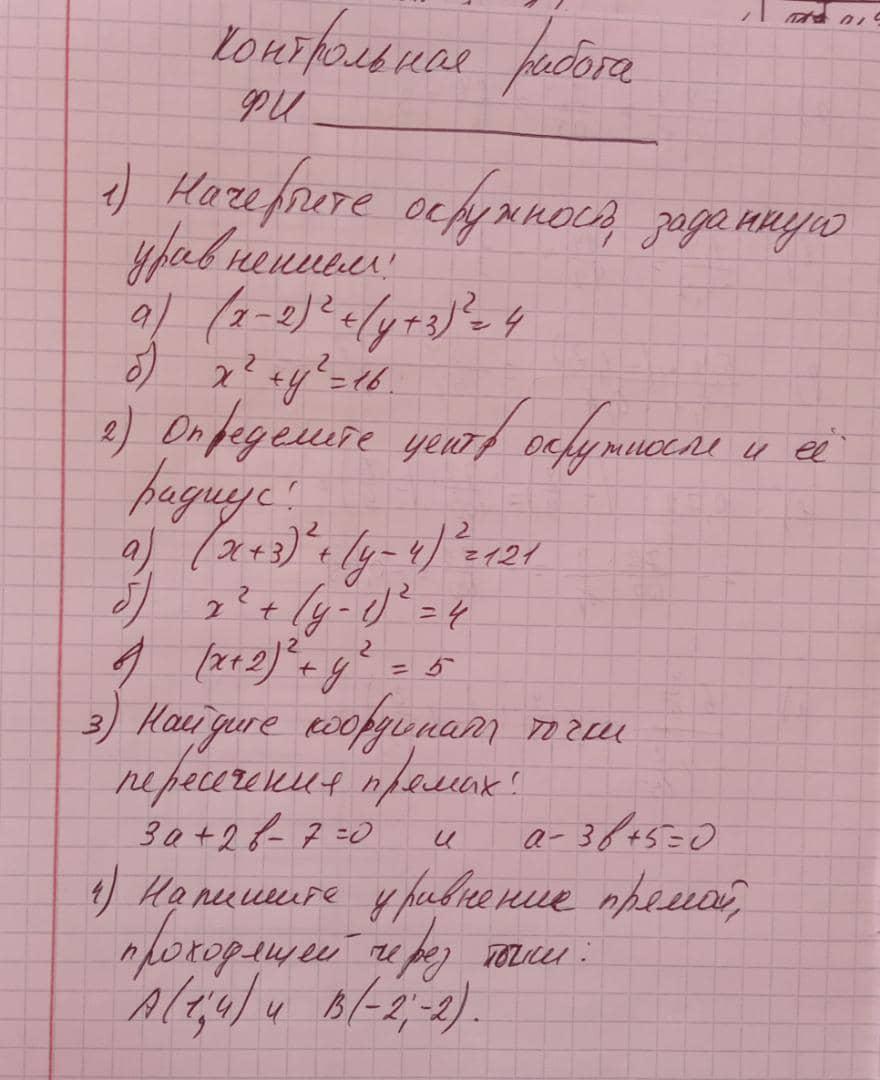 Контрольная работа
ФИ
1) Начертите окружность, заданную
уравнением:
а) (x-2)²+(y+3)²=4
б) x²+y²=16.
2) Определите центр окружности и её
радиус:
а) (x+3)²+(y-4)²=121
б) x²+(y-1)²=4
в) (x+2)²+y²=5
3) Найдите координаты точки
пересечения прямых:
3a+2b-7=0 и a-3b+5=0
4) Напишите уравнение прямой,
проходящей через точки:
A(1;4) и B(-2;-2).